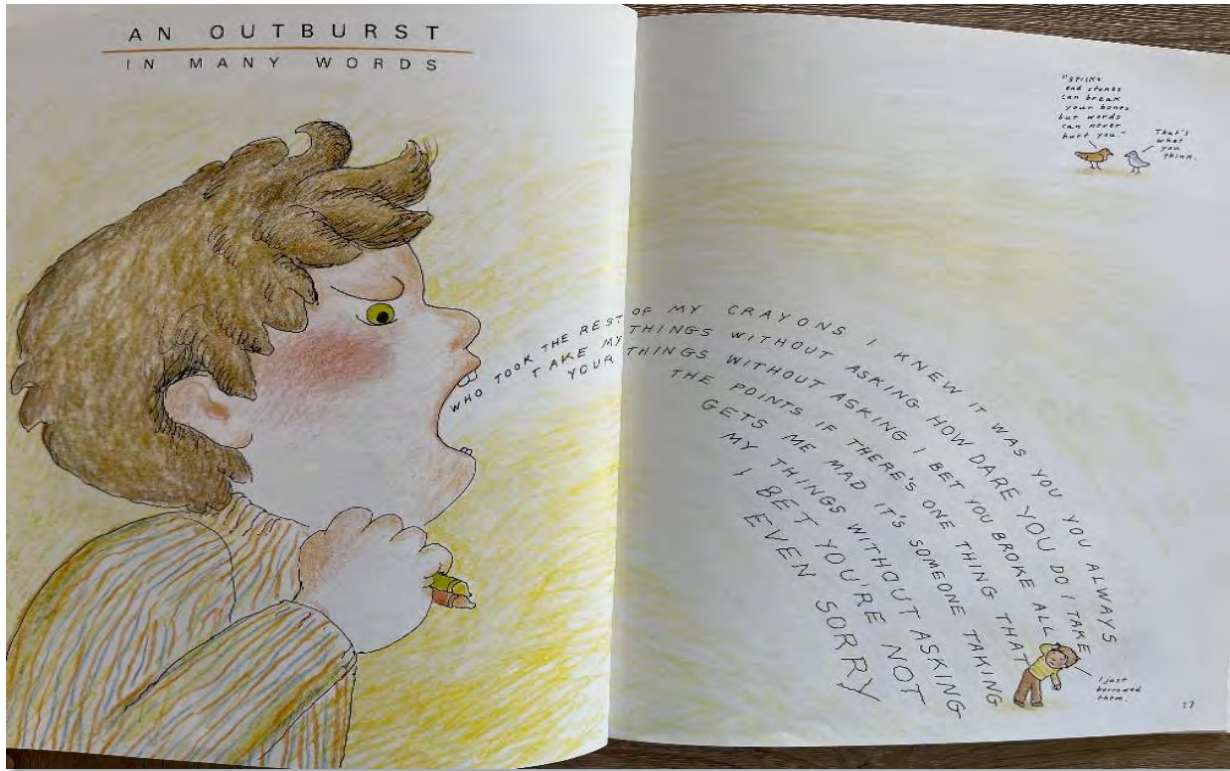 AN OUTBURST
IN MANY WORDS
"Sticks
and stones
can break
your bones
but words
can never
hurt you"
That's
what
you
think.
WHO TOOK THE REST OF MY CRAYONS I KNEW IT WAS YOU YOU ALWAYS
TAKE MY THINGS WITHOUT ASKING HOW DARE YOU DO I TAKE
YOUR THINGS WITHOUT ASKING I BET YOU BROKE ALL
THE POINTS IF THERE'S ONE THING THAT
GETS ME MAD IT'S SOMEONE TAKING
MY THINGS WITHOUT ASKING
I BET YOU'RE NOT
EVEN SORRY
I just
borrowed
them.